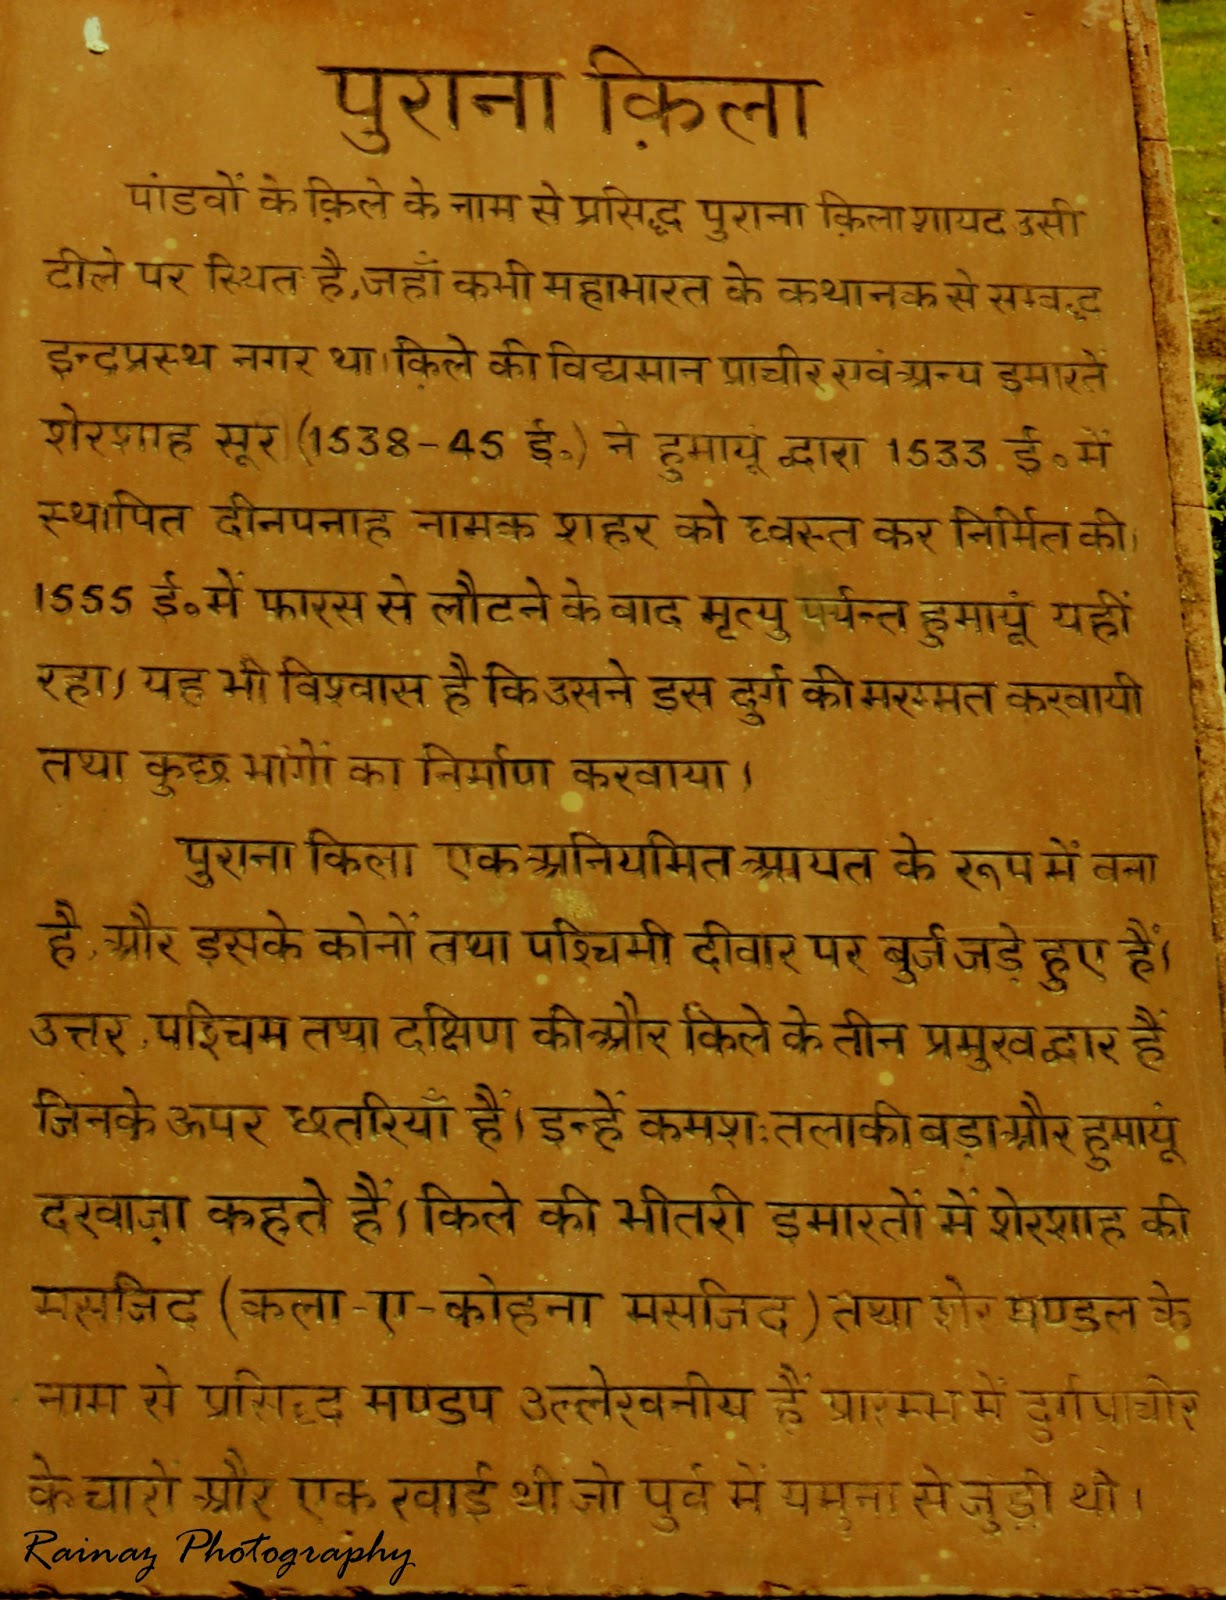 पुराना क़िला
पांडवों के क़िले के नाम से प्रसिद्ध पुराना क़िला शायद उसी
टीले पर स्थित है, जहाँ कभी महाभारत के कथानक से सम्बद्ध
इन्द्रप्रस्थ नगर था। क़िले की विद्यमान प्राचीर एवं अन्य इमारतें
शेरशाह सूर (1538-45 ई॰) ने हुमायूं द्वारा 1533 ई॰ में
स्थापित दीनपनाह नामक शहर को ध्वस्त कर निर्मित की।
1555 ई॰ में फारस से लौटने के बाद मृत्यु पर्यन्त हुमायूं यहीं
रहा। यह भी विश्वास है कि उसने इस दुर्ग की मरम्मत करवायी
तथा कुछ भागों का निर्माण करवाया।
पुराना किला एक अनियमित आयत के रूप में बना
है, और इसके कोनों तथा पश्चिमी दीवार पर बुर्ज जड़े हुए हैं।
उत्तर, पश्चिम तथा दक्षिण की और किले के तीन प्रमुख द्वार हैं
जिनके ऊपर छतरियाँ हैं। इन्हें कमशः तलाकी बड़ा और हुमायूं
दरवाज़ा कहते हैं। किले की भीतरी इमारतों में शेरशाह की
मसजिद (कला-ए-कोहना मसजिद) तथा शेर मण्डल के
नाम से प्रसिद्ध मण्डप उल्लेखनीय हैं प्रारम्भ में दुर्ग प्राचीर
के चारों और एक खाई थी जो पुर्व में यमुना से जुड़ी थी।
Rainaz Photography